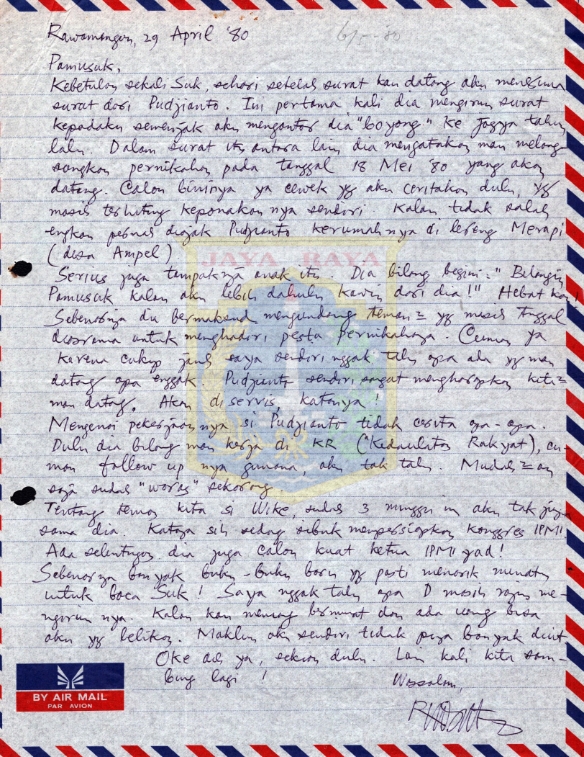 Rawamangun, 29 April '80
6/5-'80
Pamusuk,
Kebetulan sekali Suk, sehari setelah surat kau datang aku menerima
surat dari Pudjianto. Ini pertama kali dia mengirim surat
kepadaku semenjak aku mengantar dia "boyong" ke Jogja tahun
lalu. Dalam surat itu antara lain dia mengatakan mau melang-
sungkan pernikahan pada tanggal 18 Mei '80 yang akan
datang. Calon bininya ya cewek yg aku ceritakan dulu, yg
masih terhitung keponakannya sendiri. Kalau tidak salah
engkau pernah diajak Pudjianto kerumahnya di lereng Merapi
(desa Ampel)
JAYA RAYA
Serius juga tampaknya anak itu. Dia bilang begini: "Bilangin
Pamusuk kalau aku lebih dahulu kawin dari dia!" Hebat kan!
Sebenarnya dia bermaksud mengundang teman2 yg masih tinggal
diasrama untuk menghadiri pesta pernikahannya. Cuman ya
karena cukup jauh saya sendiri nggak tahu apa ada yg mau
datang apa enggak. Pudjianto sendiri sangat mengharapkan kita2
mau datang. Akan diservis katanya!
Mengenai pekerjaannya si Pudjianto tidak cerita apa-apa.
Dulu dia bilang mau kerja di KR ("Kedaulatan Rakyat), cu-
man follow up nya gimana, aku tak tahu. Mudah2an
saja sudah "waras" sekarang.
Tentang teman kita si Wike, sudah 3 minggu ini aku tak jumpa
sama dia. Katanya sih sedang sibuk mempersiapkan konggres IPMI
Ada selentingan dia juga calon kuat ketua IPMI yad!
Sebenarnya banyak buku-buku baru yg pasti menarik minatmu
untuk baca Suk! Saya nggak tahu apa D masih rajin me-
ngirim nya. Kalau kau memang berminat dan ada uang bisa
aku yg belikan. Maklum aku sendiri tidak punya banyak duit
Oke deh ya, sekian dulu. Lain kali kita sam-
bung lagi!
Wassalam,
BY AIR MAIL
PAR AVION